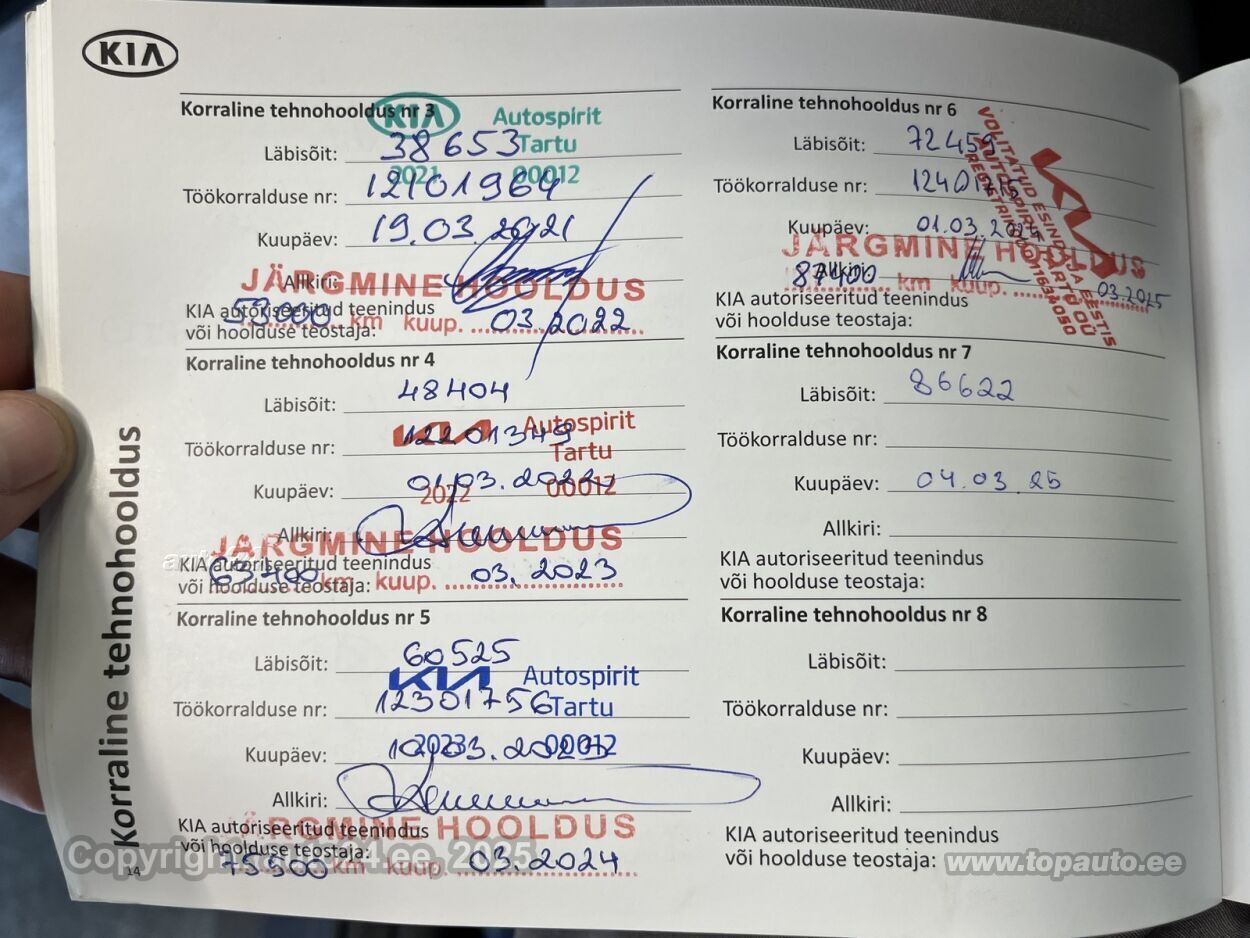 KIA
Korraline tehnohooldus
Korraline tehnohooldus nr 3
KIA Autospirit
Tartu
2021 00012
Läbisõit: 38653
Töökorralduse nr: 12101964
Kuupäev: 19.03.2021
Allkiri:
JÄRGMINE HOOLDUS
KIA autoriseeritud teenindus
või hoolduse teostaja:
53000 km kuup. 03.2022
Korraline tehnohooldus nr 4
Läbisõit: 48404
KIA Autospirit
Tartu
2022 00012
Töökorralduse nr: 12201349
Kuupäev: 01.03.2022
Allkiri:
JÄRGMINE HOOLDUS
KIA autoriseeritud teenindus
või hoolduse teostaja:
63400 km kuup. 03.2023
Korraline tehnohooldus nr 5
Läbisõit: 60525
KIA Autospirit
Tartu
2023 00012
Töökorralduse nr: 12301756
Kuupäev: 10.03.2023
Allkiri:
JÄRGMINE HOOLDUS
KIA autoriseeritud teenindus
või hoolduse teostaja:
75500 km kuup. 03.2024
14
Korraline tehnohooldus nr 6
Läbisõit: 72459
Töökorralduse nr: 12401715
Kuupäev: 01.03.2024
Allkiri:
VOLITATUD ESINDAJA EESTIS
AUTOSPIRIT TARTU OÜ
KIA
JÄRGMINE HOOLDUS
87400 km kuup. 03.2025
KIA autoriseeritud teenindus
või hoolduse teostaja:
Korraline tehnohooldus nr 7
Läbisõit: 86622
Töökorralduse nr:
Kuupäev: 04.03.25
Allkiri:
KIA autoriseeritud teenindus
või hoolduse teostaja:
Korraline tehnohooldus nr 8
Läbisõit:
Töökorralduse nr:
Kuupäev:
Allkiri:
KIA autoriseeritud teenindus
või hoolduse teostaja:
www.topauto.ee